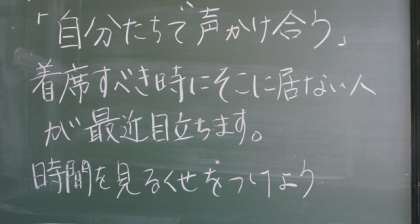 「自分たちで声かけ合う」
着席すべき時にそこに居ない人
が最近目立ちます。
時間を見るくせをつけよう